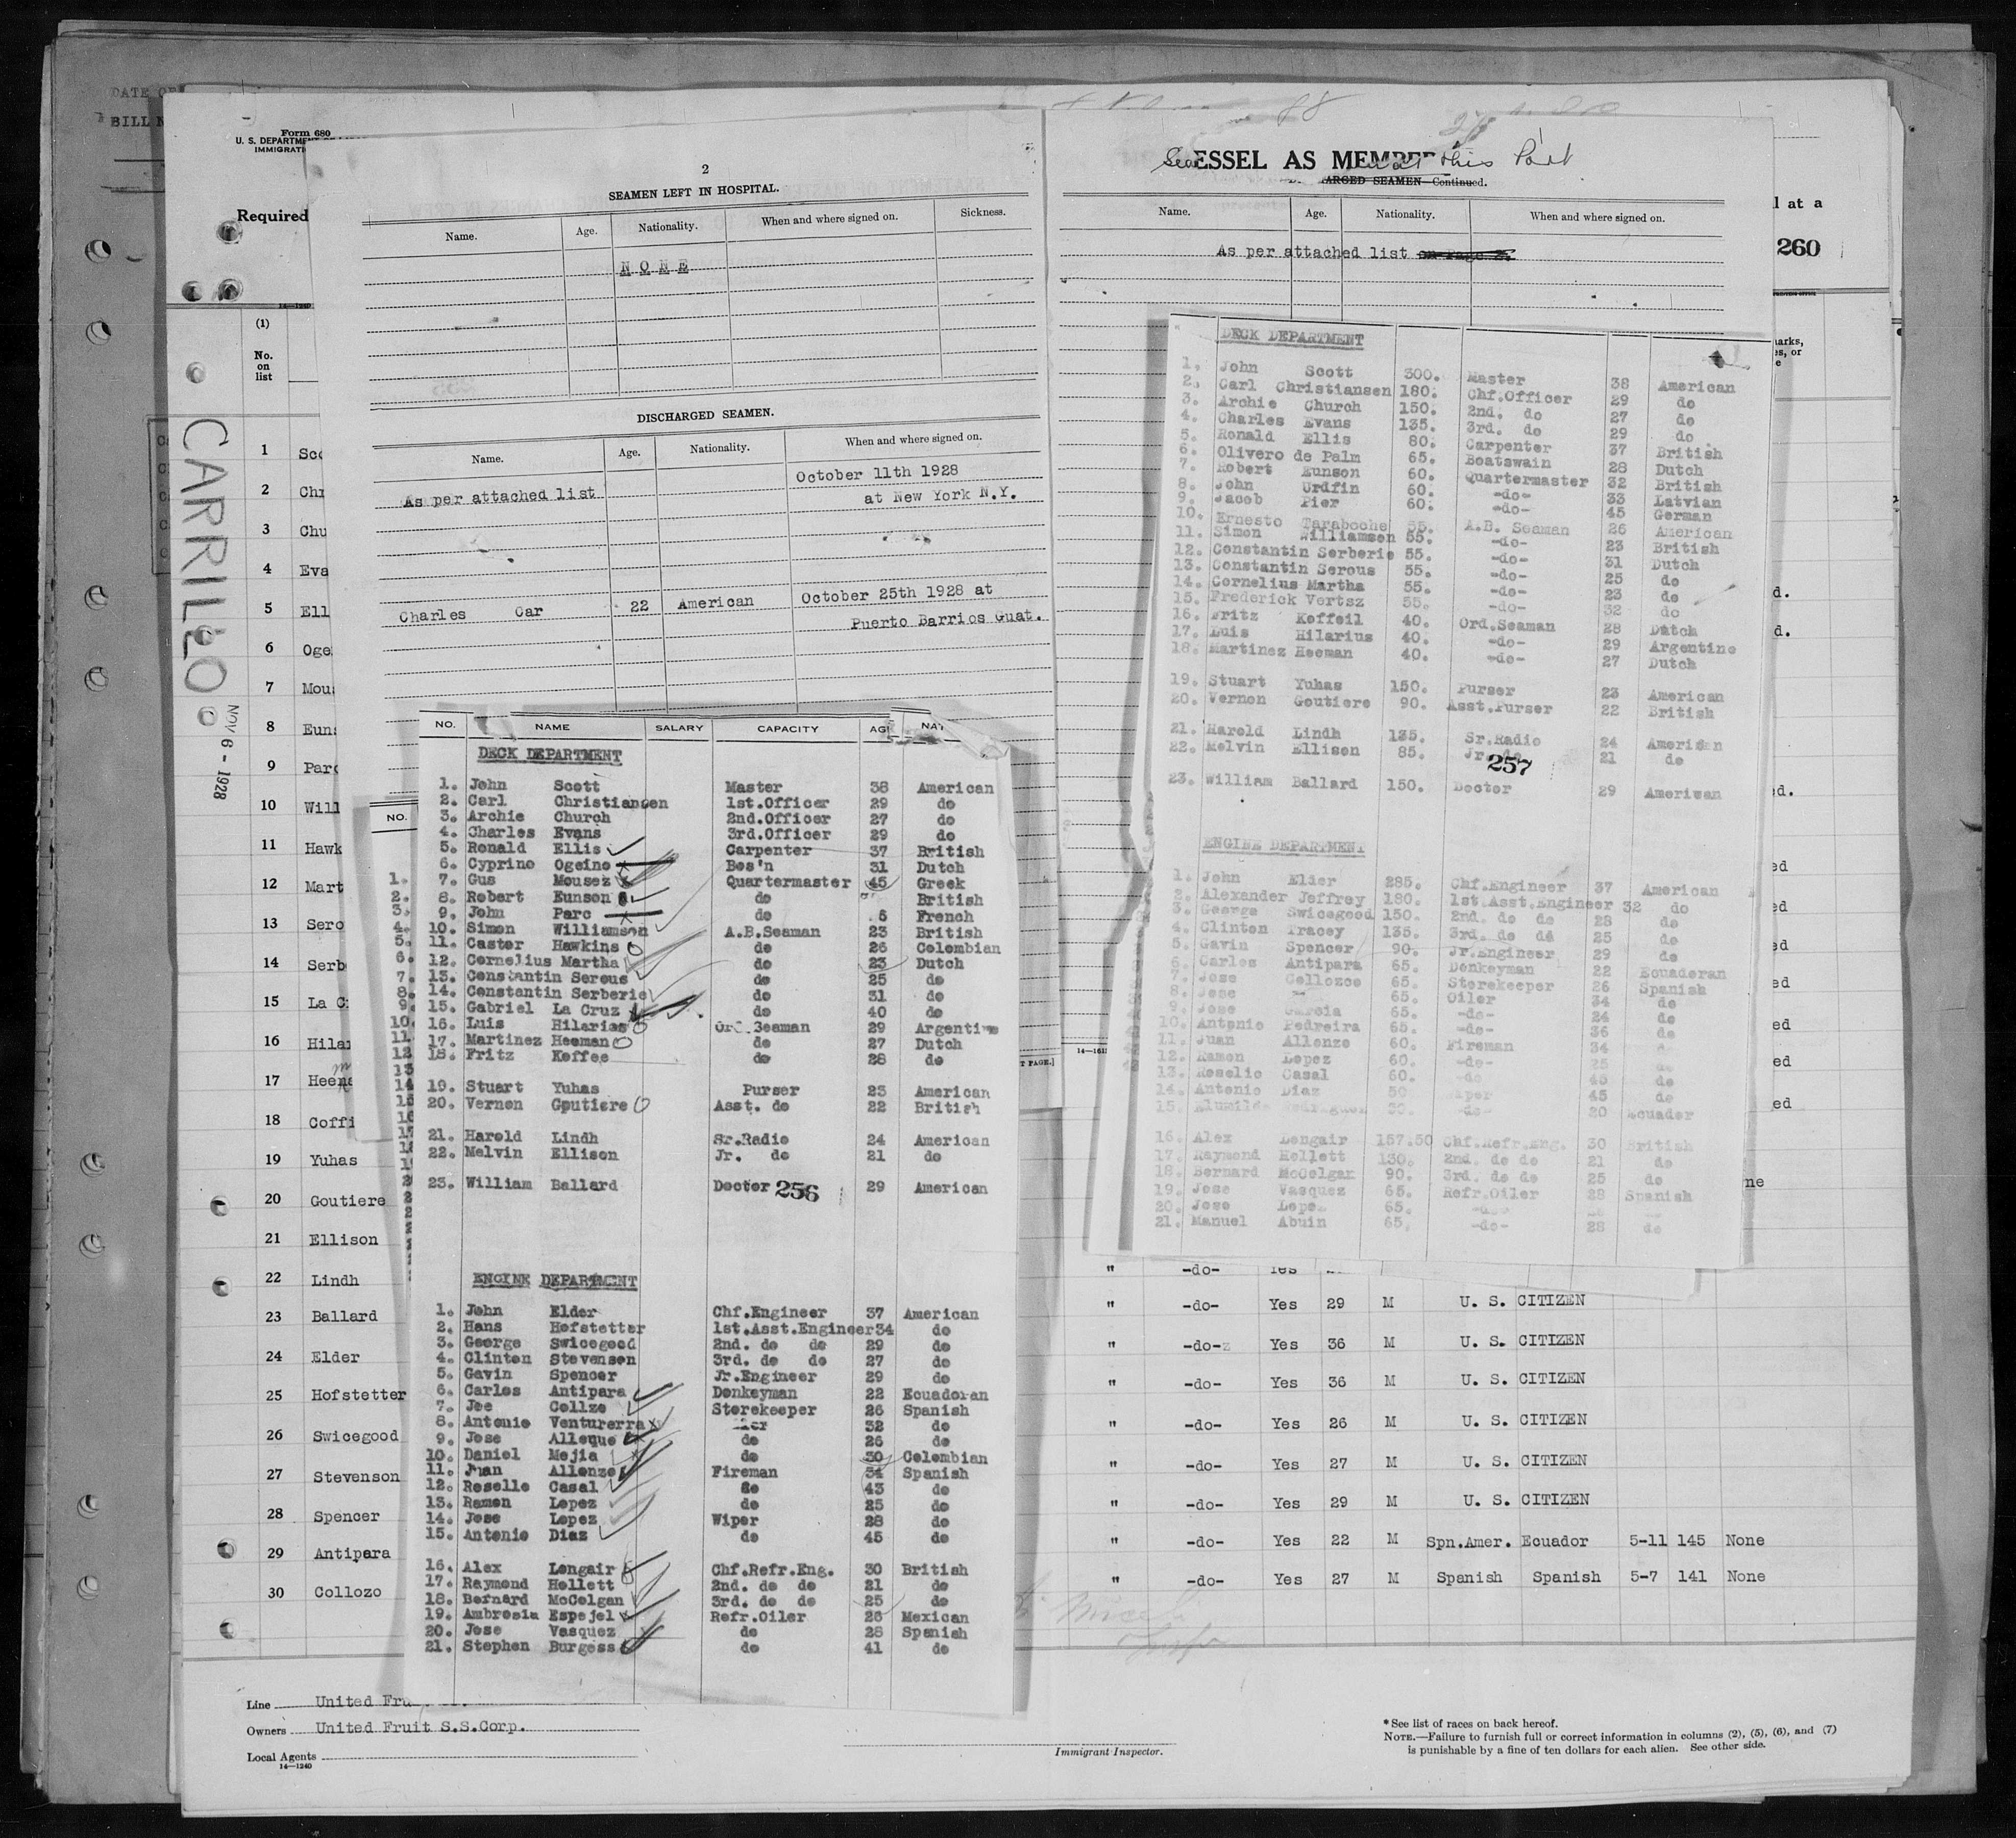 DATE OF
BILL N
Form 680
U. S. DEPARTME
IMMIGRATI
Required
l at a
260
14—1240
(1)
No.
on
list
arks,
es, or
e
CARRILLO
NOV 6 - 1928
2
SEAMEN LEFT IN HOSPITAL.
Name. Age. Nationality. When and where signed on. Sickness.
NONE
DISCHARGED SEAMEN.
Name. Age. Nationality. When and where signed on.
October 11th 1928
As per attached list at New York N.Y.
Charles Car 22 American October 25th 1928 at
Puerto Barrios Guat.
ESSEL AS MEMBER this Port
ARGED SEAMEN—Continued.
Name. Age. Nationality. When and where signed on.
As per attached list on Page 2.
DECK DEPARTMENT
1. John Scott 300. Master 38 American
2. Carl Christiansen 180. Chf.Officer 29 do
3. Archie Church 150. 2nd. do 27 do
4. Charles Evans 135. 3rd. do 29 do
5. Ronald Ellis 80. Carpenter 37 British
6. Olivero de Palm 65. Boatswain 28 Dutch
7. Robert Eunson 60. Quartermaster 32 British
8. John Urdfin 60. -do- 33 Latvian
9. Jacob Pier 60. -do- 45 German
10. Ernesto Taraboche 55. A.B. Seaman 26 American
11. Simon Williamson 55. -do- 23 British
12. Constantin Serberie 55. -do- 31 Dutch
13. Constantin Serous 55. -do- 25 do
14. Cornelius Martha 55. -do- 23 do
15. Frederick Vertsz 55. -do- 32 do
16. Fritz Koffeil 40. Ord.Seaman 28 Dutch
17. Luis Hilarius 40. -do- 29 Argentine
18. Martinez Heeman 40. -do- 27 Dutch
19. Stuart Yuhas 150. Purser 23 American
20. Vernon Goutiere 90. Asst.Purser 22 British
21. Harold Lindh 135. Sr.Radio 24 American
22. Melvin Ellison 85. Jr. do 21 do
257
23. William Ballard 150. Doctor 29 American
ENGINE DEPARTMENT
1. John Elder 285. Chf.Engineer 37 American
2. Alexander Jeffrey 180. 1st.Asst.Engineer 32 do
3. George Swicegood 150. 2nd. do do 28 do
4. Clinton Tracey 135. 3rd. do do 25 do
5. Gavin Spencer 90. Jr.Engineer 29 do
6. Carlos Antipara 65. Donkeyman 22 Ecuadoran
7. Jose Collozoo 65. Storekeeper 26 Spanish
8. Jose 65. Oiler 34 do
9. Jose Garcia 65. -do- 24 do
10. Antonio Pedreira 65. -do- 36 do
11. Juan Allonzo 60. Fireman 34
12. Ramon Lopez 60. -do- 25 do
13. Roselio Casal 60. -do 43 do
14. Antonio Diaz 50 Wiper 45 do
15. -do- 20 Ecuador
16. Alex Longair 157.50 Chf.Refr.Eng. 30 British
17. Raymond Hollett 130. 2nd. do do 21 do
18. Bernard McColgan 90. 3rd. do do 25 do
19. Jose Vasquez 65. Refr.Oiler 28 Spanish
20. Jose Lopez 65. -do-
21. Manuel Abuin 65. -do- 28 do
NO. NAME SALARY CAPACITY AG NAT
DECK DEPARTMENT
1. John Scott Master 38 American
2. Carl Christiansen 1st.Officer 29 do
3. Archie Church 2nd.Officer 27 do
4. Charles Evans 3rd.Officer 29 do
5. Ronald Ellis Carpenter 37 British
6. Cyprino Ogeino Bos'n 31 Dutch
7. Gus Mousez Quartermaster 45 Greek
8. Robert Eunson do British
9. John Parc do French
10. Simon Williamson A.B.Seaman 23 British
11. Caster Hawkins do 26 Colombian
12. Cornelius Martha do 23 Dutch
13. Constantin Serous do 25 do
14. Constantin Serberie do 31 do
15. Gabriel La Cruz do 40 do
16. Luis Hilarius Ord.Seaman 29 Argentine
17. Martinez Heeman do 27 Dutch
18. Fritz Koffee do 28 do
19. Stuart Yuhas Purser 23 American
20. Vernon Goutiere Asst. do 22 British
21. Harold Lindh Sr.Radio 24 American
22. Melvin Ellison Jr. do 21 do
23. William Ballard Doctor 29 American
256
ENGINE DEPARTMENT
1. John Elder Chf.Engineer 37 American
2. Hans Hofstetter 1st.Asst.Engineer 34 do
3. George Swicegood 2nd. do do 29 do
4. Clinton Stevenson 3rd. do do 27 do
5. Gavin Spencer Jr.Engineer 29 do
6. Carlos Antipara Donkeyman 22 Ecuadoran
7. Joe Collzo Storekeeper 26 Spanish
8. Antonio Venturerra 32 do
9. Jose Alleque do 26 do
10. Daniel Mejia do 30 Colombian
11. Juan Allonzo Fireman 34 Spanish
12. Roselle Casal do 43 do
13. Ramon Lopez do 25 do
14. Jose Lopez Wiper 28 do
15. Antonio Diaz do 45 do
16. Alex Longair Chf.Refr.Eng. 30 British
17. Raymond Hollett 2nd. do do 21 do
18. Bernard McColgan 3rd. do do 25 do
19. Ambrosia Espejel Refr.Oiler 26 Mexican
20. Jose Vasquez do 28 Spanish
21. Stephen Burgess do 41 do
NO.
1.
2.
3.
4.
5.
6.
7.
8.
9.
10.
11
12
13
14
1 Sco
2 Chr
3 Chu
4 Eva
5 Ell
6 Oge
7 Mou
8 Eun
9 Parc
10 Will
11 Hawk
12 Mart
13 Sero
14 Serb
15 La C
16 Hila
17 Heem
18 Coffi
19 Yuhas
20 Goutiere
21 Ellison
22 Lindh " -do- Yes
23 Ballard " -do- Yes 29 M U. S. CITIZEN
24 Elder " -do- Yes 36 M U. S. CITIZEN
25 Hofstetter " -do- Yes 36 M U. S. CITIZEN
26 Swicegood " -do- Yes 26 M U. S. CITIZEN
27 Stevenson " -do- Yes 27 M U. S. CITIZEN
28 Spencer " -do- Yes 29 M U. S. CITIZEN
29 Antipara " -do- Yes 22 M Spn.Amer. Ecuador 5-11 145 None
30 Collozo " -do- Yes 27 M Spanish Spanish 5-7 141 None
Line United Fru
Owners United Fruit S.S.Corp.
Local Agents
14—1240
Immigrant Inspector.
*See list of races on back hereof.
NOTE.—Failure to furnish full or correct information in columns (2), (5), (6), and (7)
is punishable by a fine of ten dollars for each alien. See other side.